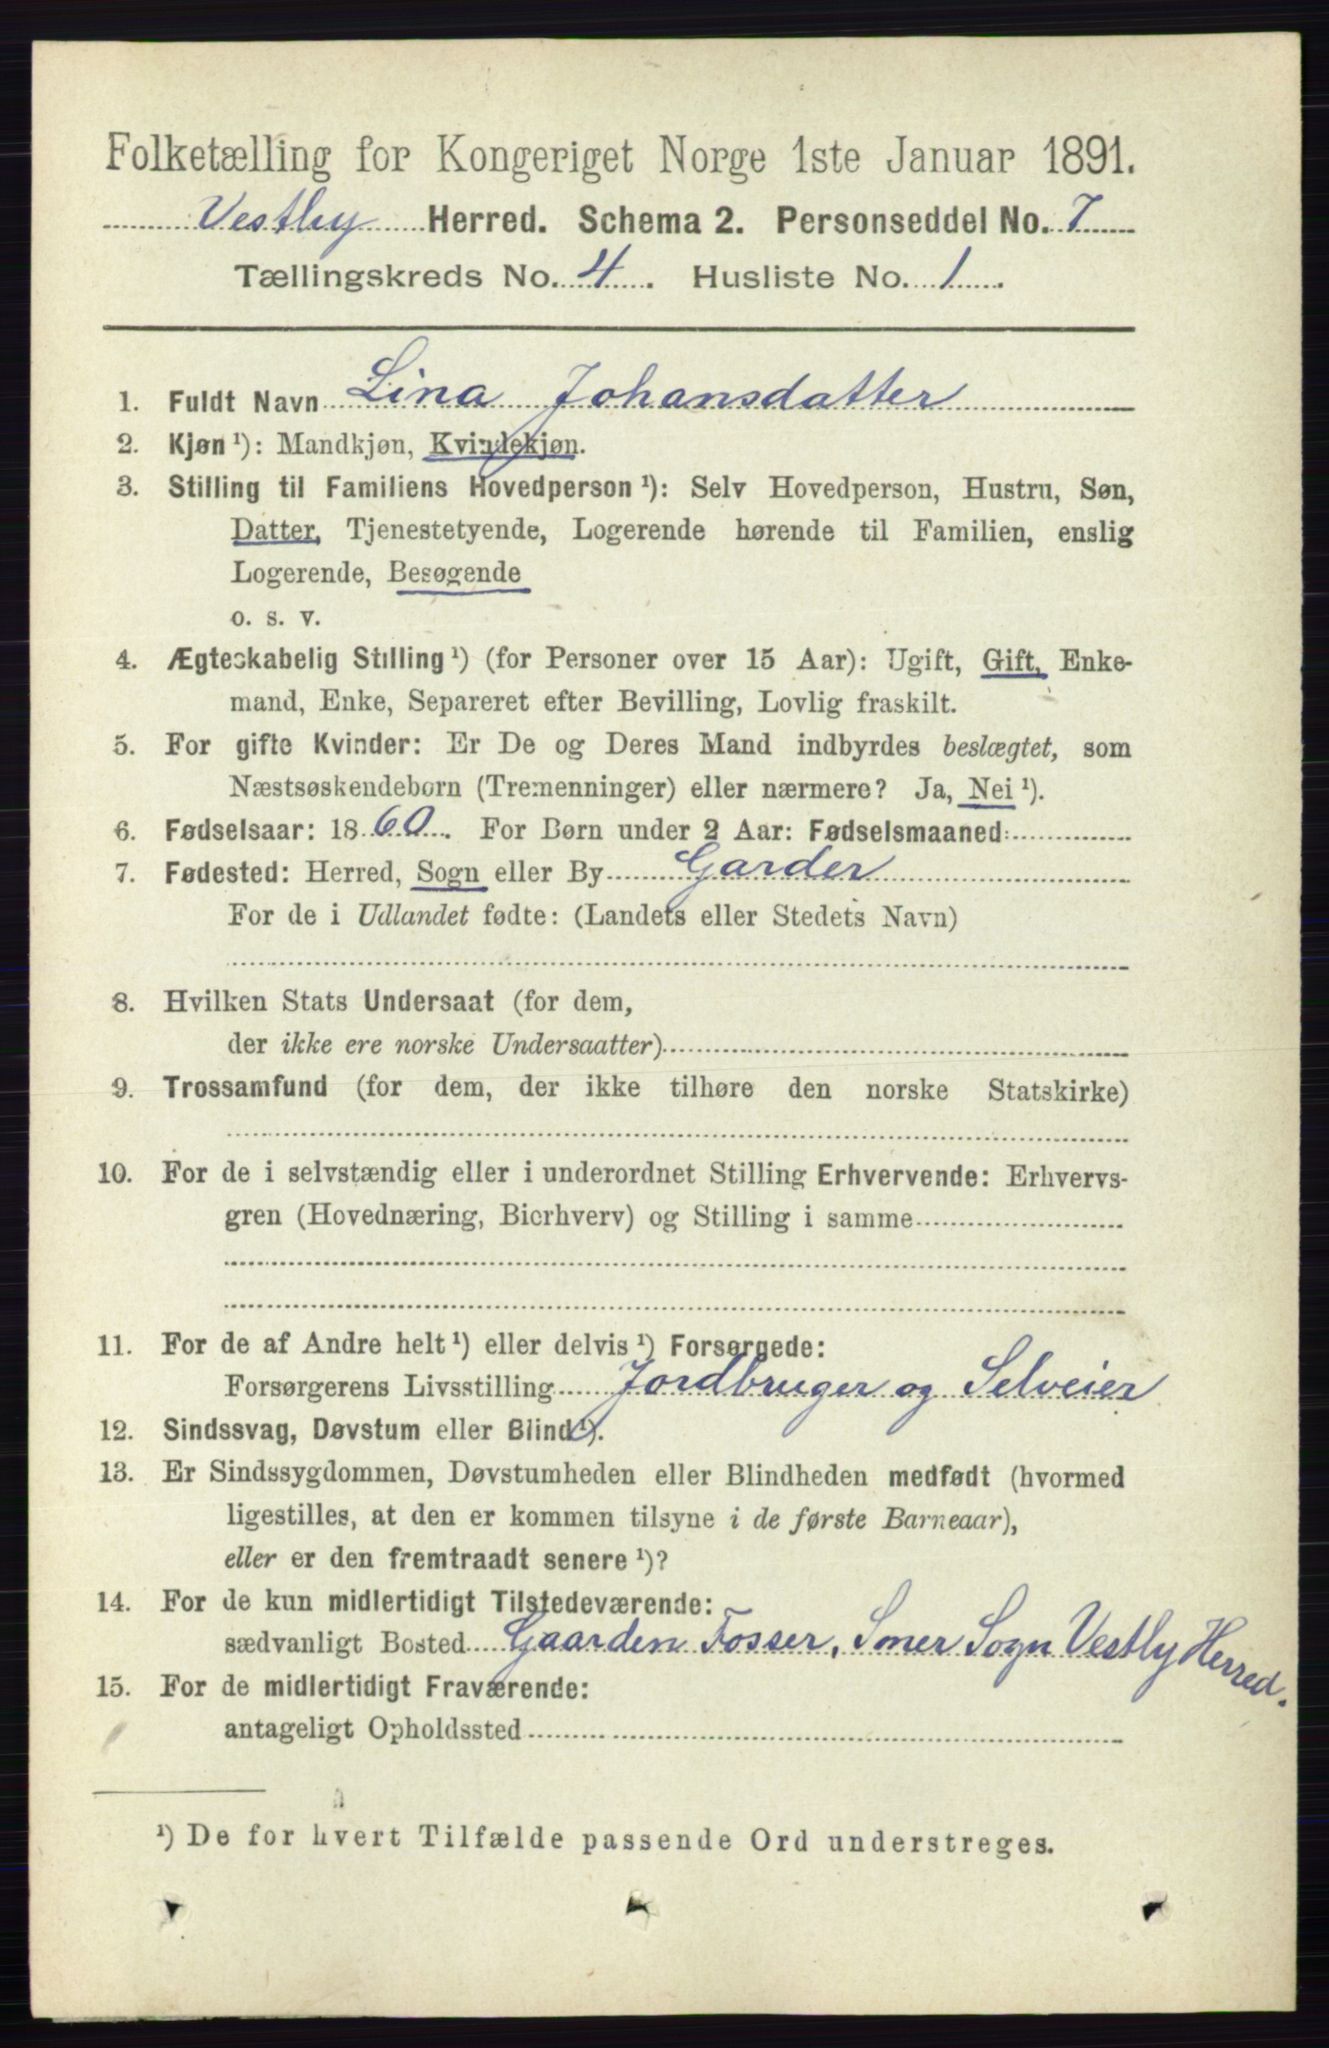 Folketælling for Kongeriget Norge 1ste Januar 1891.
Vestby Herred. Schema 2. Personseddel No. 7
Tællingskreds No. 4. Husliste No. 1.
1. Fuldt Navn Lina Johansdatter
2. Kjøn ¹): Mandkjøn, Kvindekjøn.
3. Stilling til Familiens Hovedperson ¹): Selv Hovedperson, Hustru, Søn,
Datter, Tjenestetyende, Logerende hørende til Familien, enslig
Logerende, Besøgende
o. s. v.
4. Ægteskabelig Stilling ¹) (for Personer over 15 Aar): Ugift, Gift, Enke-
mand, Enke, Separeret efter Bevilling, Lovlig fraskilt.
5. For gifte Kvinder: Er De og Deres Mand indbyrdes beslægtet, som
Næstsøskendebørn (Tremenninger) eller nærmere? Ja, Nei ¹).
6. Fødselsaar: 1860. For Børn under 2 Aar: Fødselsmaaned:
7. Fødested: Herred, Sogn eller By Garder
For de i Udlandet fødte: (Landets eller Stedets Navn)
8. Hvilken Stats Undersaat (for dem,
der ikke ere norske Undersaatter)
9. Trossamfund (for dem, der ikke tilhøre den norske Statskirke)
10. For de i selvstændig eller i underordnet Stilling Erhvervende: Erhvervs-
gren (Hovednæring, Bierhverv) og Stilling i samme
11. For de af Andre helt ¹) eller delvis ¹) Forsørgede:
Forsørgerens Livsstilling Jordbruger og Selveier
12. Sindssvag, Døvstum eller Blind ¹).
13. Er Sindssygdommen, Døvstumheden eller Blindheden medfødt (hvormed
ligestilles, at den er kommen tilsyne i de første Barneaar),
eller er den fremtraadt senere ¹)?
14. For de kun midlertidigt Tilstedeværende:
sædvanligt Bosted Gaarden Fosser, Soner Sogn Vestby Herred.
15. For de midlertidigt Fraværende:
antageligt Opholdssted
¹) De for hvert Tilfælde passende Ord understreges.